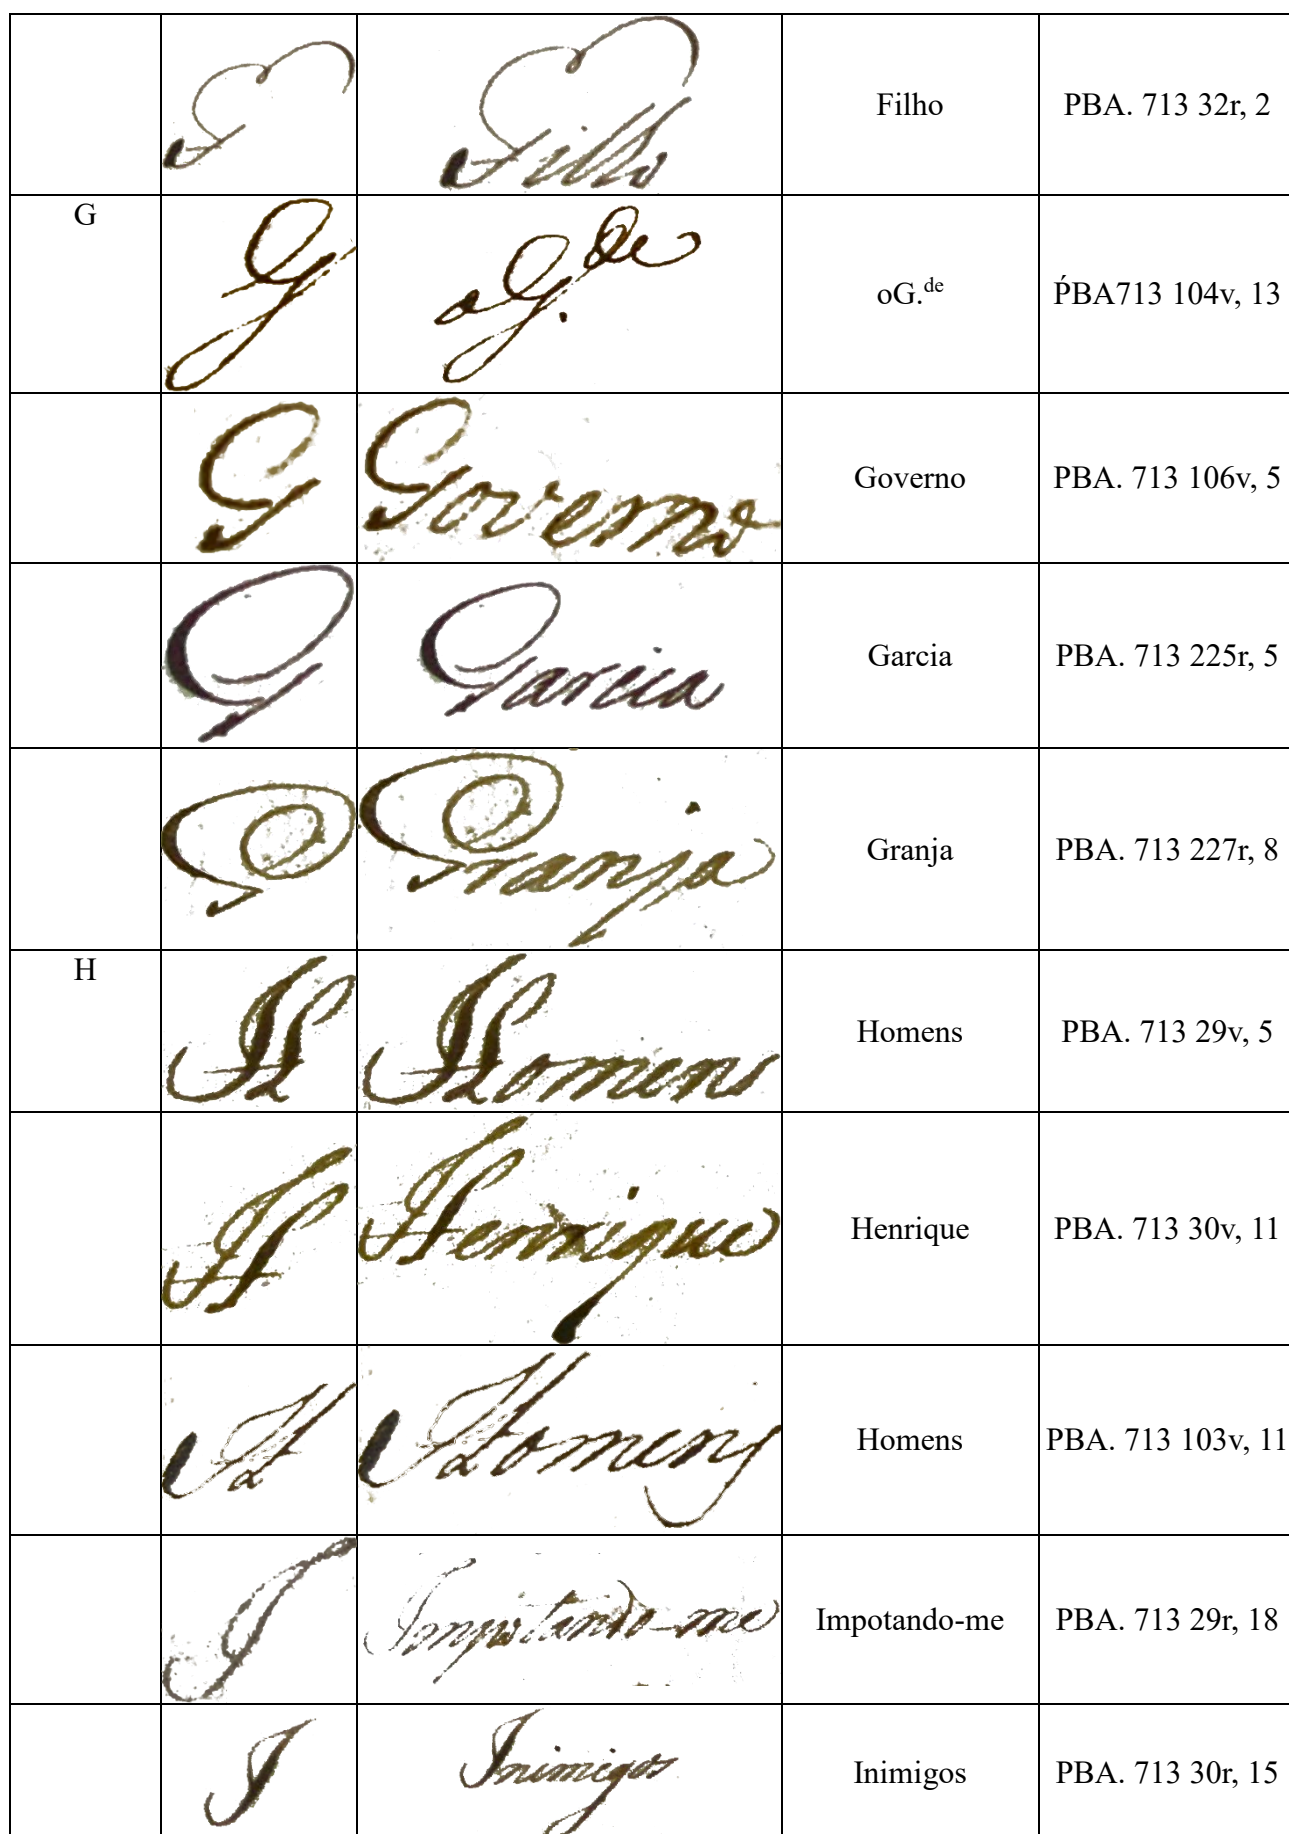 F Filho Filho PBA. 713 32r, 2
G G oG.de oG.de ṔBA713 104v, 13
G Governo Governo PBA. 713 106v, 5
G Garcia Garcia PBA. 713 225r, 5
G Granja Granja PBA. 713 227r, 8
H H Homens Homens PBA. 713 29v, 5
H Henrique Henrique PBA. 713 30v, 11
H Homens Homens PBA. 713 103v, 11
I Impotando-me Impotando-me PBA. 713 29r, 18
I Inimigos Inimigos PBA. 713 30r, 15